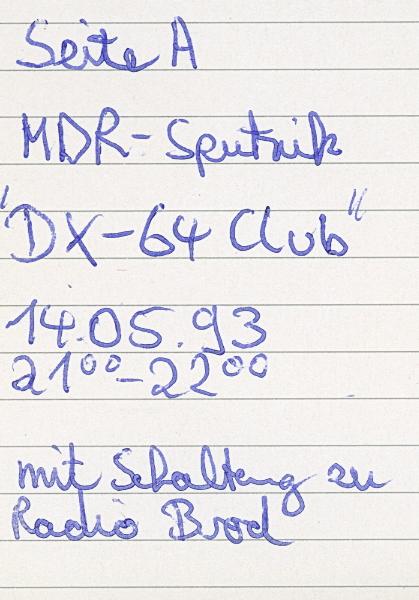 Seite A
MDR-Sputnik
"DX-64 Club"
14.05.93
21⁰⁰-22⁰⁰
mit Schaltung zu
Radio Brod